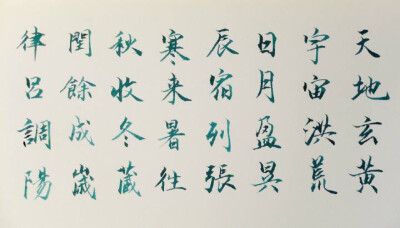 天地玄黃
宇宙洪荒
日月盈昃
辰宿列張
寒来暑往
秋收冬藏
閏餘成歲
律呂調陽